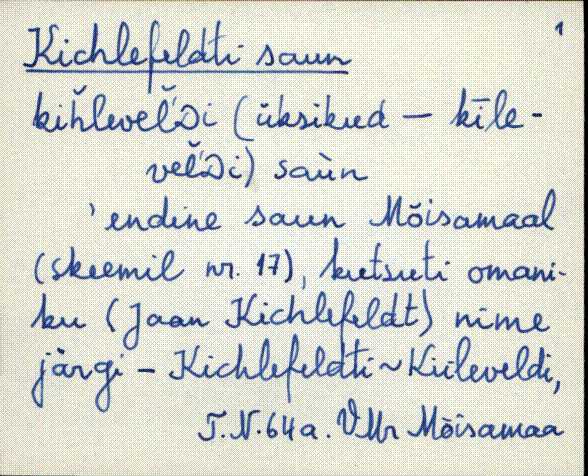 1
Kichlefeldti saun
kiȟleveľ̆Di (üksikud — kīle-
veľ̆Di) saùn
'endine saun Mõisamaal
(skeemil nr. 17), kutsuti omani-
ku (Jaan Kichlefeldt) nime
järgi – Kichlefeldti ~ Kiileveldi,
T.N. 64 a. VMr Mõisamaa